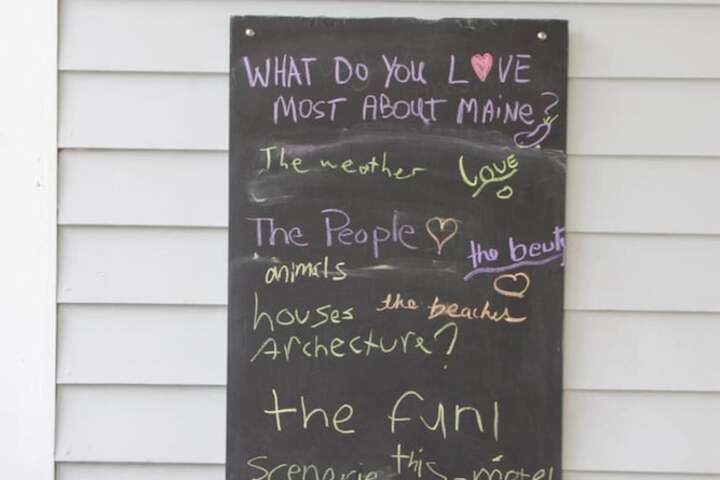 WHAT DO YOU LOVE
MOST ABOUT MAINE?
The weather
LOVE
The People
the beuty
animals
houses
the beaches
Archecture?
the fun!
Scenarie
this motel